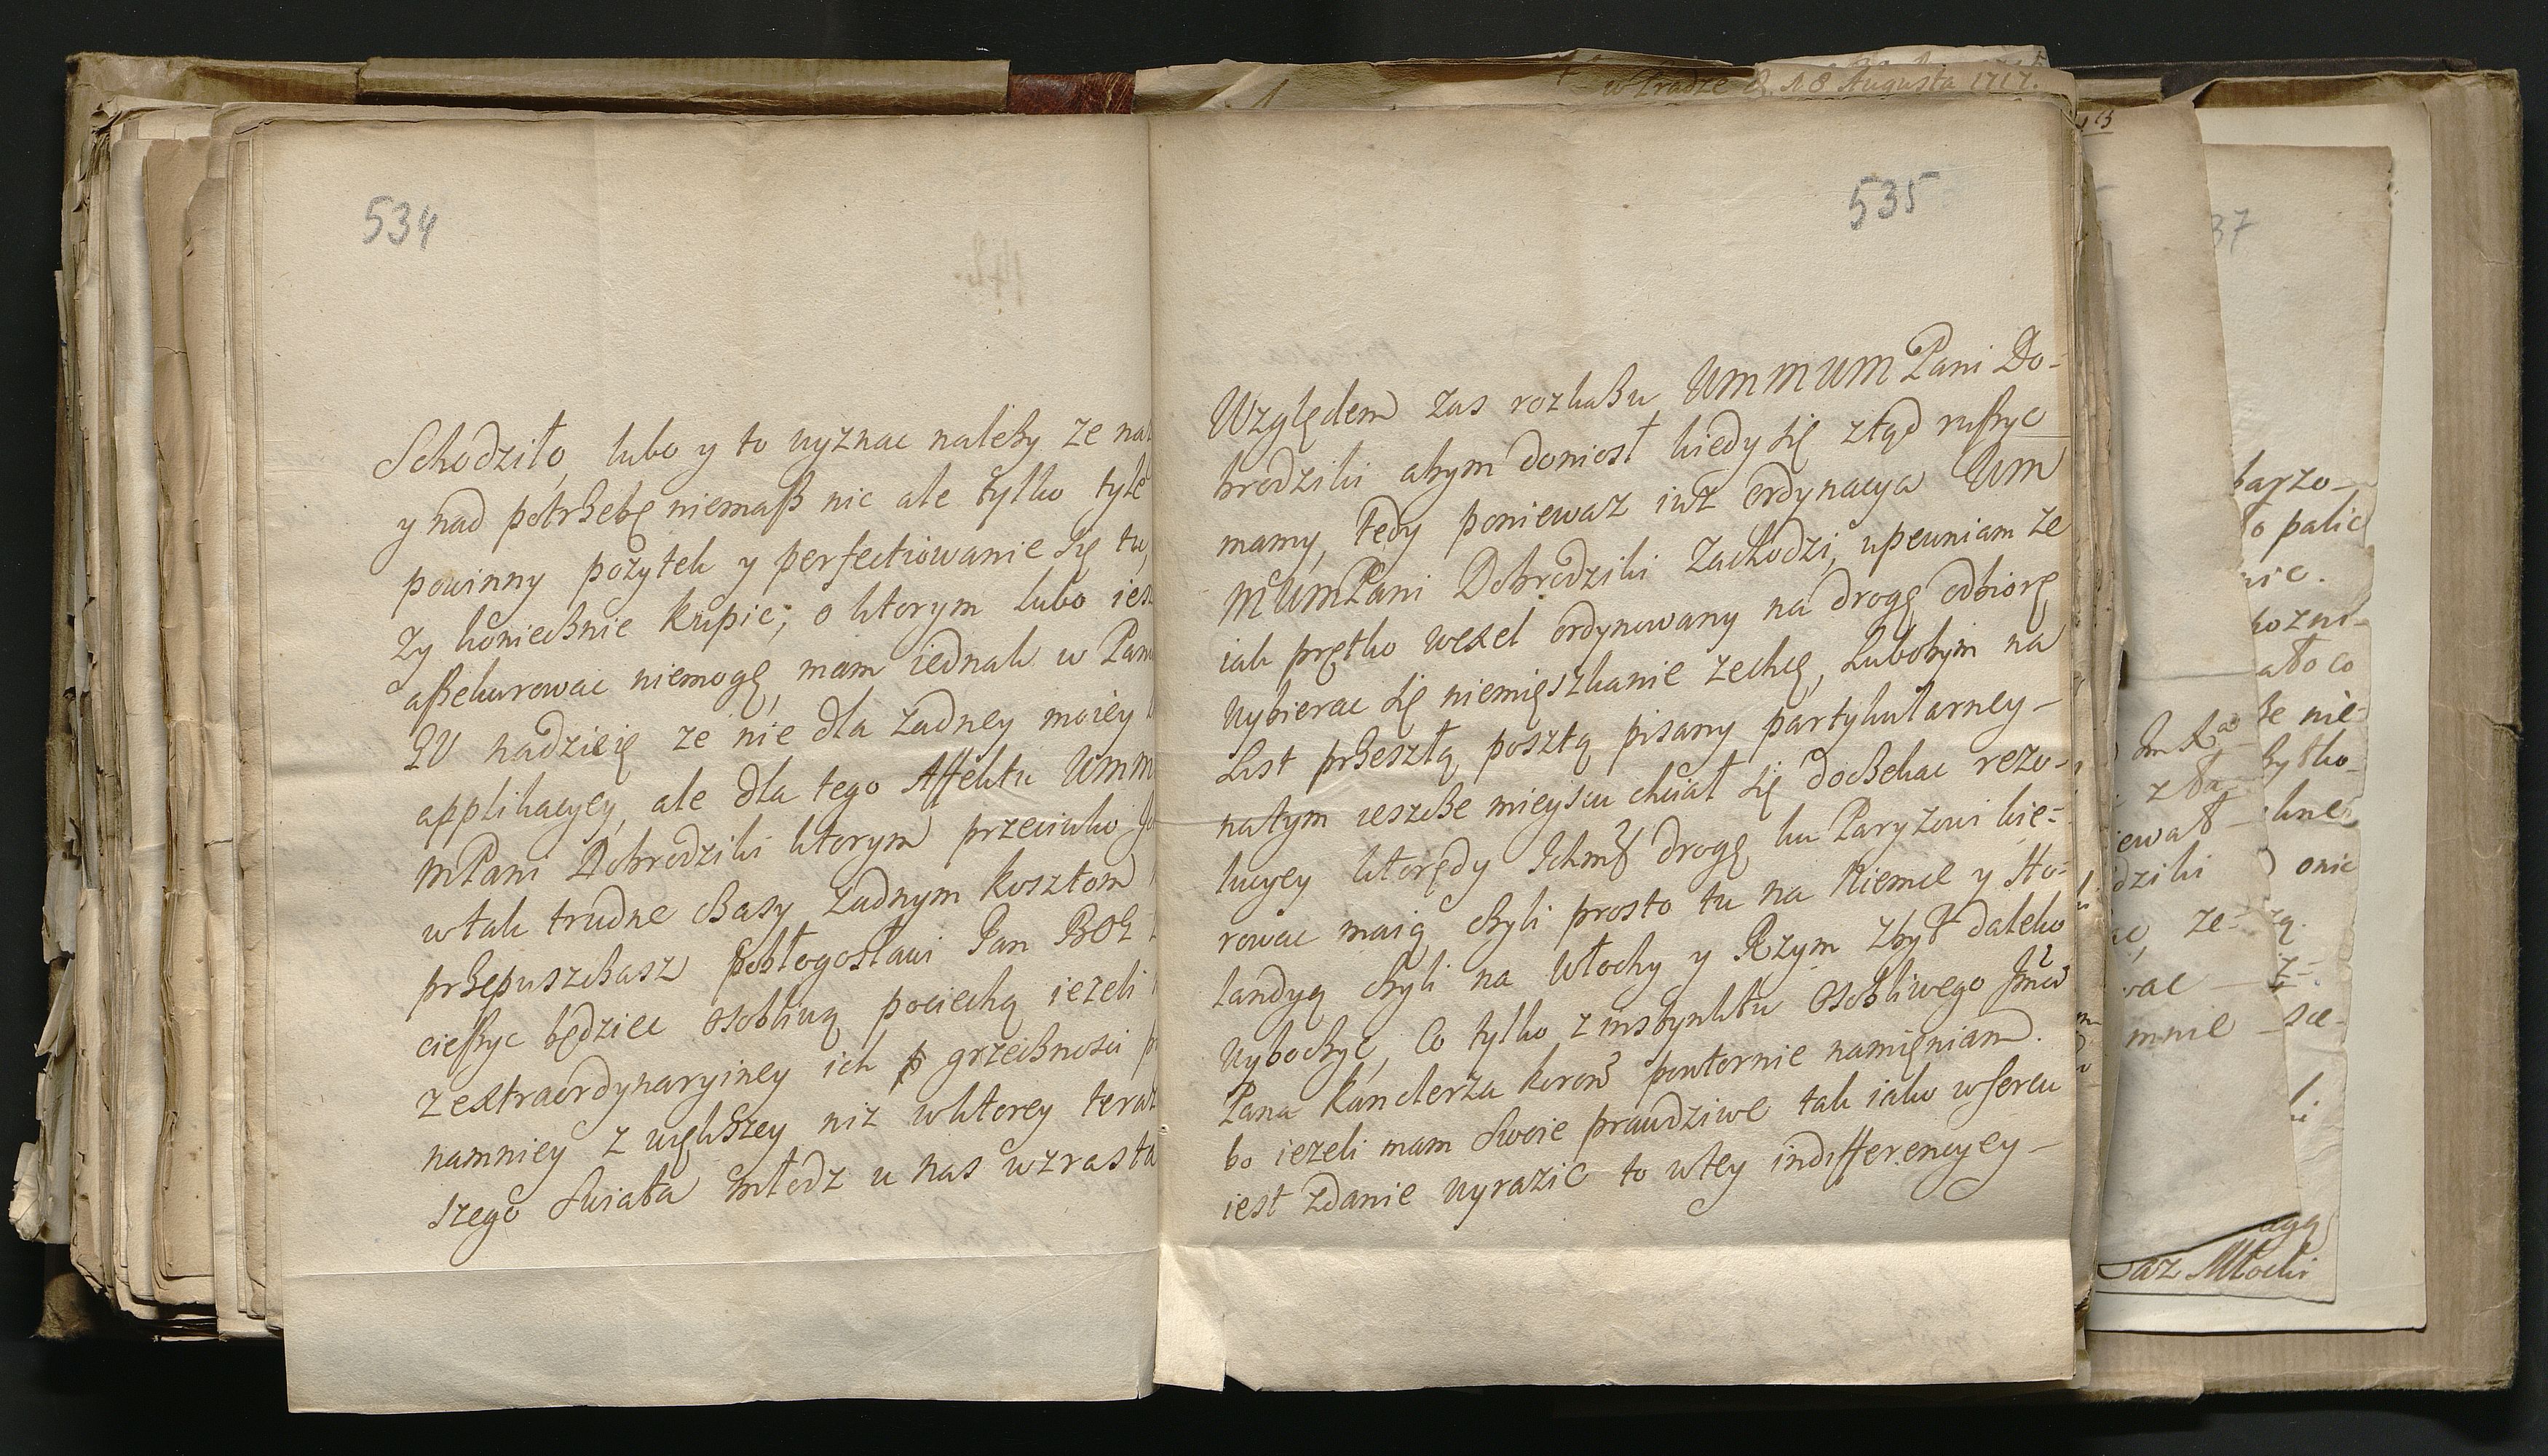 w Pradze d. 18 Augusta 1717.
534
Schodziło, lubo y to uyznac należy ze na
y nad potrzebę niemasz nic ale tylko tyle
powinny pożytek y perfectiowanie się tu,
zy koniecznie kupic; o ktorym lubo ies
assekurowac niemogę, mam iednak w Pan
GU nadzieię ze nie dla zadney moiey
applikacyey, ale dla tego Affektu Umm
MPani Dobrodziki ktorym przeciwko
w tak trudne czasy zadnym kosztom
przepuszczasz pobłogosławi Pan BOG
cieszyc będziec osobliwą pociechą iezeli
z extraordynaryiney ich grzecznosci
namniey z większey niz w ktorey teraz
szego swiata młodz u nas wzrasta
535
Względem zas rozkazu UMMUM Pani Do-
brodziki abym doniosł kiedy się ztąd ruszyc
mamy, tedy poniewaz iuz ordynacya UM
MUMPani Dobrodziki zachodzi, upewniam ze
iak prętko wexel ordynowany na drogę odbiorę
wybierac się niemięszkanie zechcę, lubobym na
List przeszłą posztą pisany partykularney
natym ieszcze mieyscu chciał się doczekac rezo-
lucyey ktorędy Ichmć drogę ku Paryzowi kie-
rowac maią czyli prosto tu na Niemce y Ho-
landyą czyli na Włochy y Rzym zbyt daleko
wyboczyc, Co tylko z instynktu osobliwego Jmci
Pana Kanclerza koron powtornie namięniam.
bo iezeli mam swoie prawdziwe tak iako w sercu
iest zdanie wyrazic to w tey indifferencyey
37
barzo
o palic
nic.
ato co
onic
dziki
ze
mnie
az Młocki